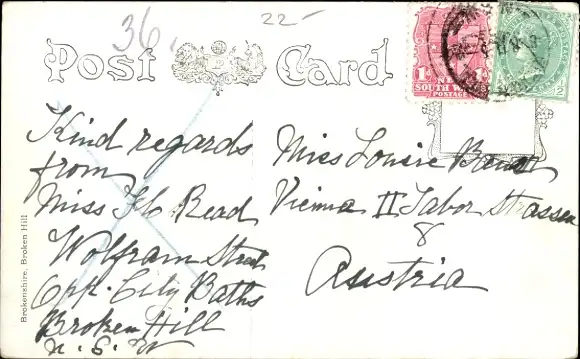 36
22-
Post Card
1d
NEW
SOUTH WALES
POSTAGE
Kind regards
from
Miss Flo Read
Wolfram Street
Opp. City Baths
Broken Hill
N. S. W
Miss Louise
Vienna II Tabor Strassen
8
Austria
Brokenshire, Broken Hill